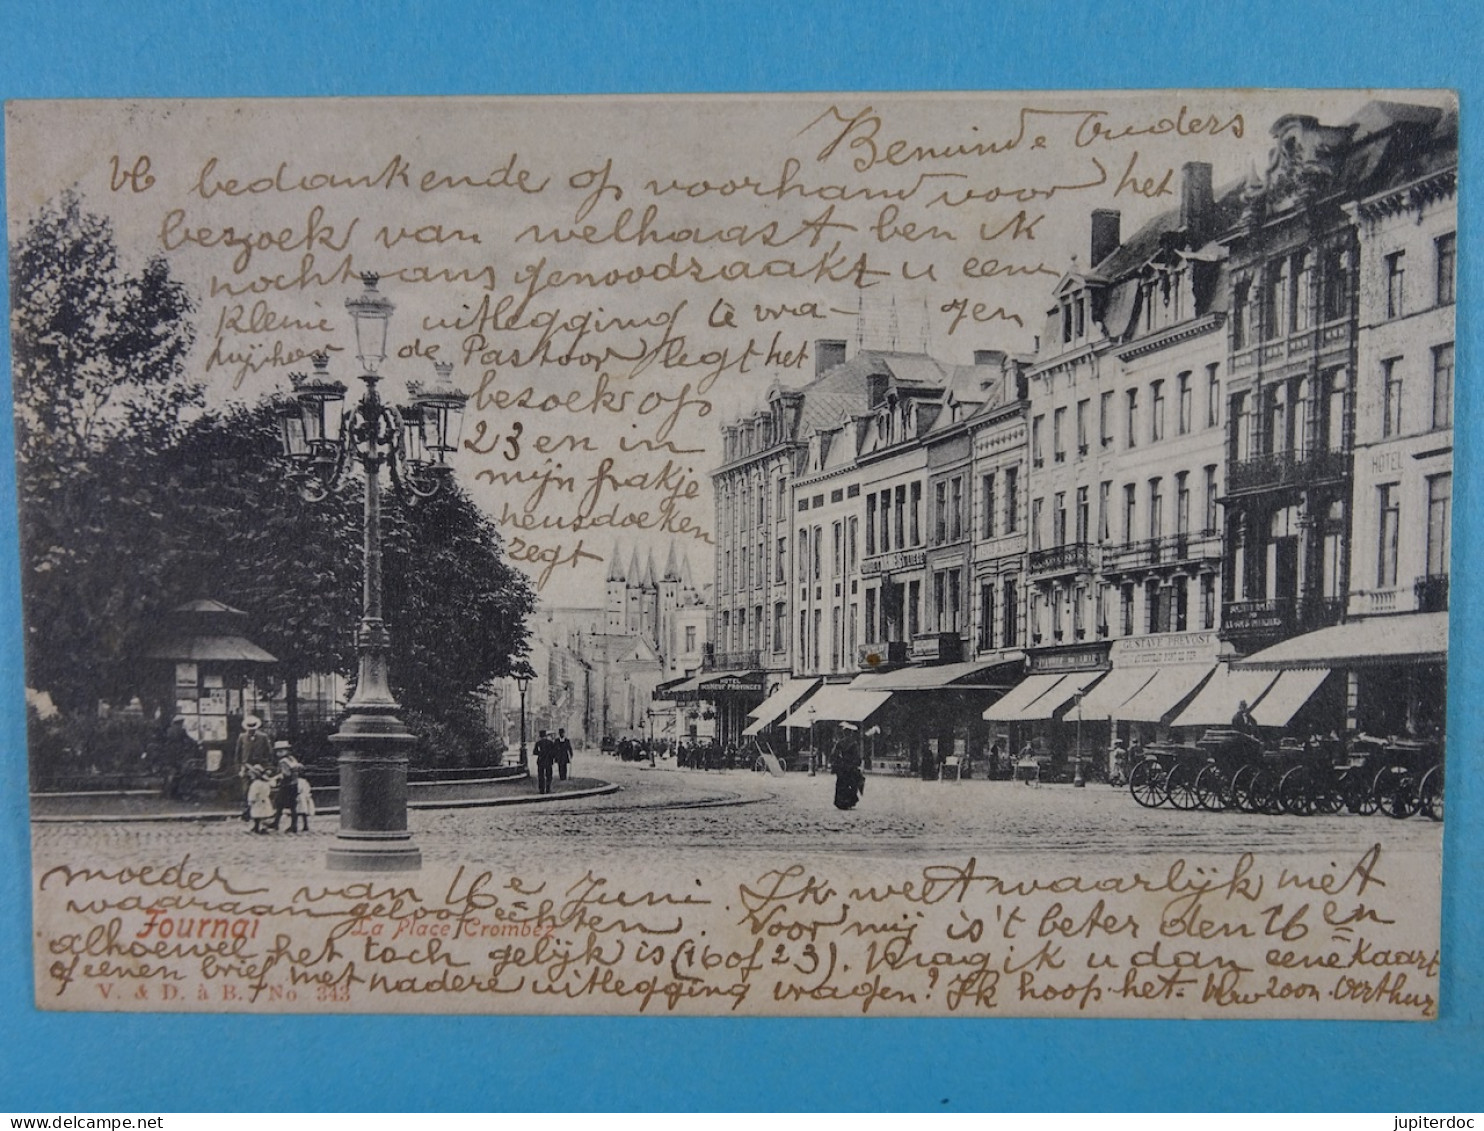 Beminde Ouders
U bedankende op voorhand voor het
bezoek van welhaast, ben ik
nochtans genoodzaakt u eene
kleine uitlegging te vragen
de Pastoor legt het
bezoek op
23 en in
mijn frakje
heusdoeken
zegt
moeder van 16e Juni. Ik weet waarlijk niet
waaraan geloof echten. Voor mij is 't beter den 16en
alhoewel het toch gelijk is (16 of 23). Vraag ik u dan eene kaart
of eenen brief met nadere uitlegging vragen? Ik hoop het. Uw zoon Arthur
Tournai La Place Crombez
V. & D. à B., No 343
HÔTEL
GUSTAVE PREVOST
HÔTEL
jupiterdoc